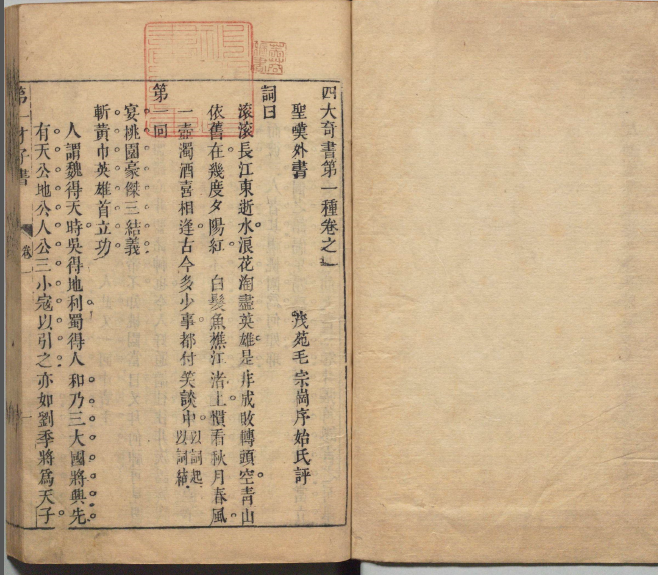 四大奇書第一種卷之一
聖嘆外書 茂苑毛宗崗序始氏評
詞曰
滚滚長江東逝水浪花淘盡英雄是非成敗轉頭空靑山
依舊在幾度夕陽紅 白髮魚樵江渚上慣看秋月春風
一壺濁酒喜相逢古今多少事都付笑談中以詞起以詞結
第一回
宴桃園豪傑三結義
斬黃巾英雄首立功
人謂魏得天時吳得地利蜀得人和乃三大國將興先
有天公地公人公三小寇以引之亦如劉季將爲天子
第一才子書 卷一 一